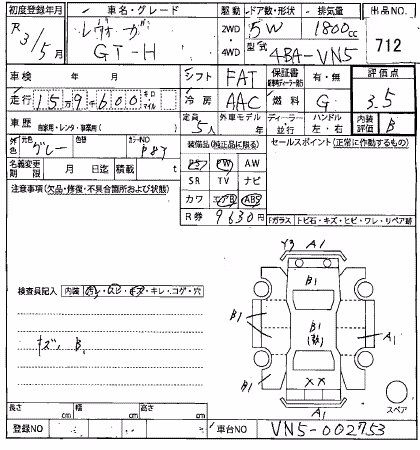 初度登録年月 車名・グレード 駆動 ドア数・形状 排気量 出品NO.
R3年5月 レヴォーグ GT-H 2WD 4WD 5W 1800cc 712
型式 4BA-VN5
車検 年 月 シフト FAT 保証書 有・無 評価点
走行 15万9千600 キロ マイル 冷房 AAC 燃料 G 3.5
車歴 自家用・レンタ・事業用( ) 定員 5人 外車モデル 年 ディーラー・並行 ハンドル 左・右 内装 B
外色 元色 グレー 色替 カラーNO P8Y 装備品(純正品に限る) セールスポイント(正常に作動するもの)
名義変更期限 月 日迄 積載 t PS PW AW
注意事項(欠品・修復・不具合箇所および状態) SR TV ナビ
カワ エアB ABS
R券 9630円
Fガラス トビ石・キズ・ヒビ・ワレ・リペア跡
Y3 A1
B1
検査員記入 内装 ・キレ・コゲ・穴
B1 B1 A1
キズ、B1
XX
B1 A1
A1 スペア
長さ cm 幅 cm 高さ cm
登録NO 車台NO VN5-002753